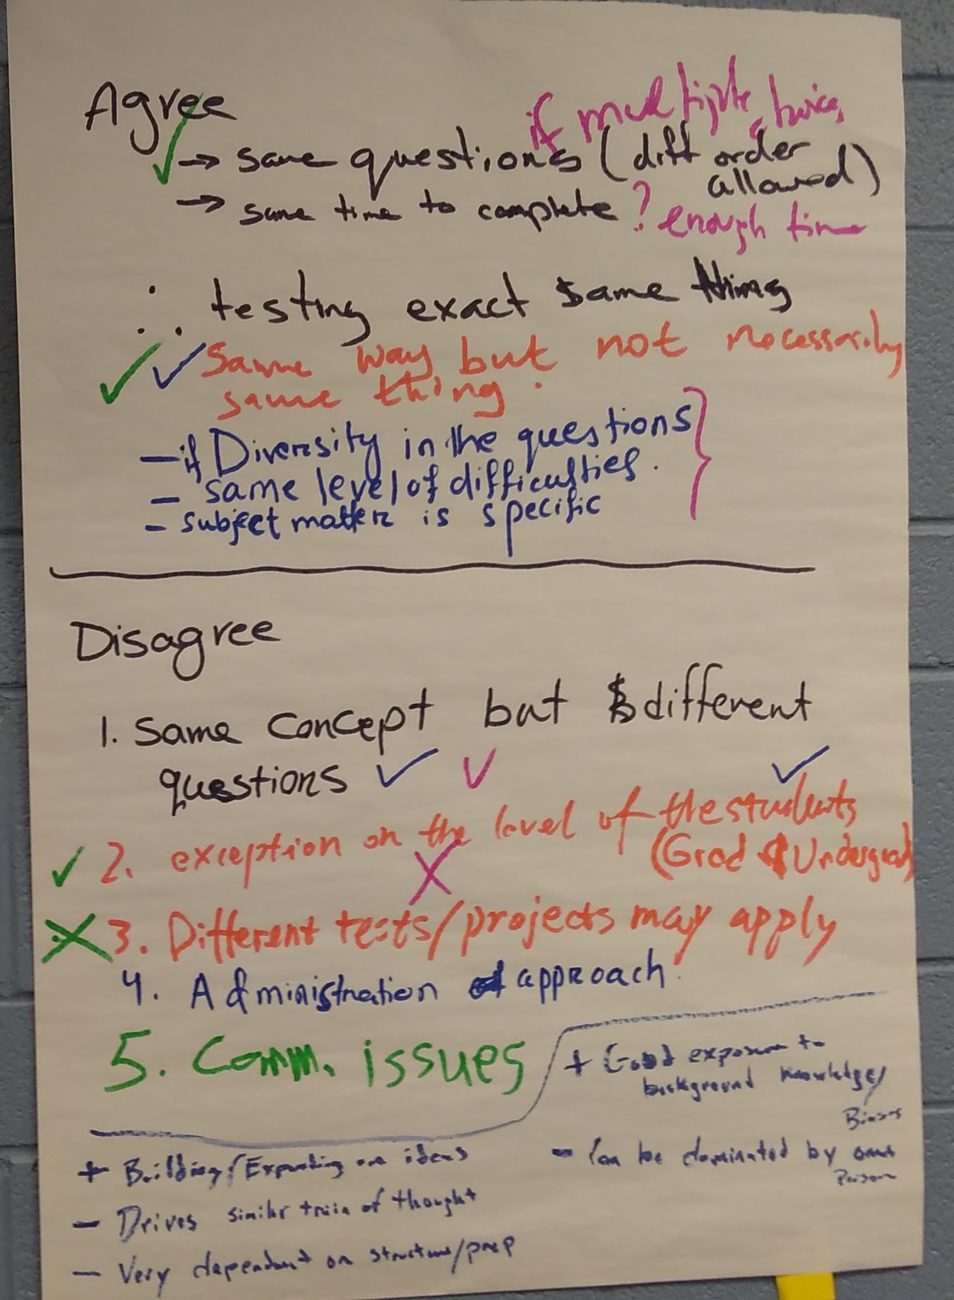 Agree
if multiple, twice,
→ same questions (diff order
allowed)
→ same time to complete ? enough time
∴ testing exact same thing
same way but not necessarily
same thing.
– if Diversity in the questions
– same level of difficulties.
– subject matter is specific
Disagree
1. Same concept but different
questions
2. exception on the level of the students
(Grad & Undergrad)
3. Different tests/projects may apply
4. Administration approach.
5. Comm. issues
+ Good exposure to
background knowledge/
Biases
– Can be dominated by one
Person
+ Building/Expanding on ideas
– Drives similar train of thought
– Very dependent on structure/prep